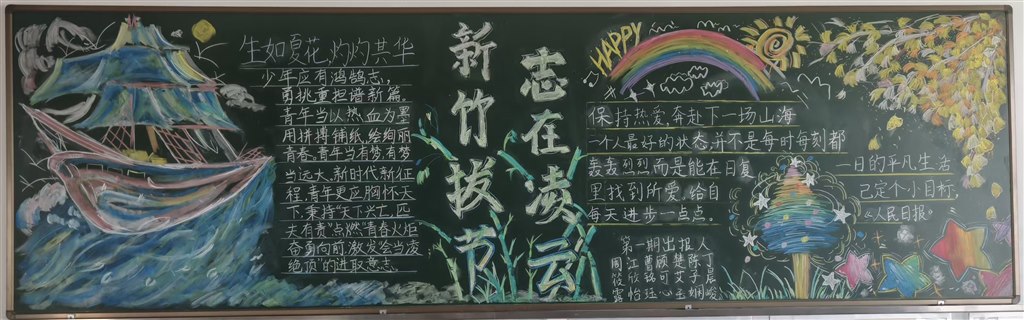 生如夏花,灼灼其华
少年应有鸿鹄志,
勇挑重担谱新篇。
青年当以热血为墨
用拼搏铺纸,绘绚丽
青春。青年当有梦,有梦
当远大。新时代新征
程,青年更应胸怀天
下,秉持"天下兴亡,匹
夫有责"点燃青春火炬
奋勇向前,激发"会当凌
绝顶"的进取意志。
新竹拔节
志在凌云
HAPPY
保持热爱,奔赴下一场山海
一个人最好的状态,并不是每时每刻都
轰轰烈烈而是能在日复一日的平凡生活
里找到所爱,给自己定个小目标,
每天进步一点点。 《人民日报》
第一期出报人
周江曹顾楚陈丁
筱欣铭可艾子晨
露怡珏心